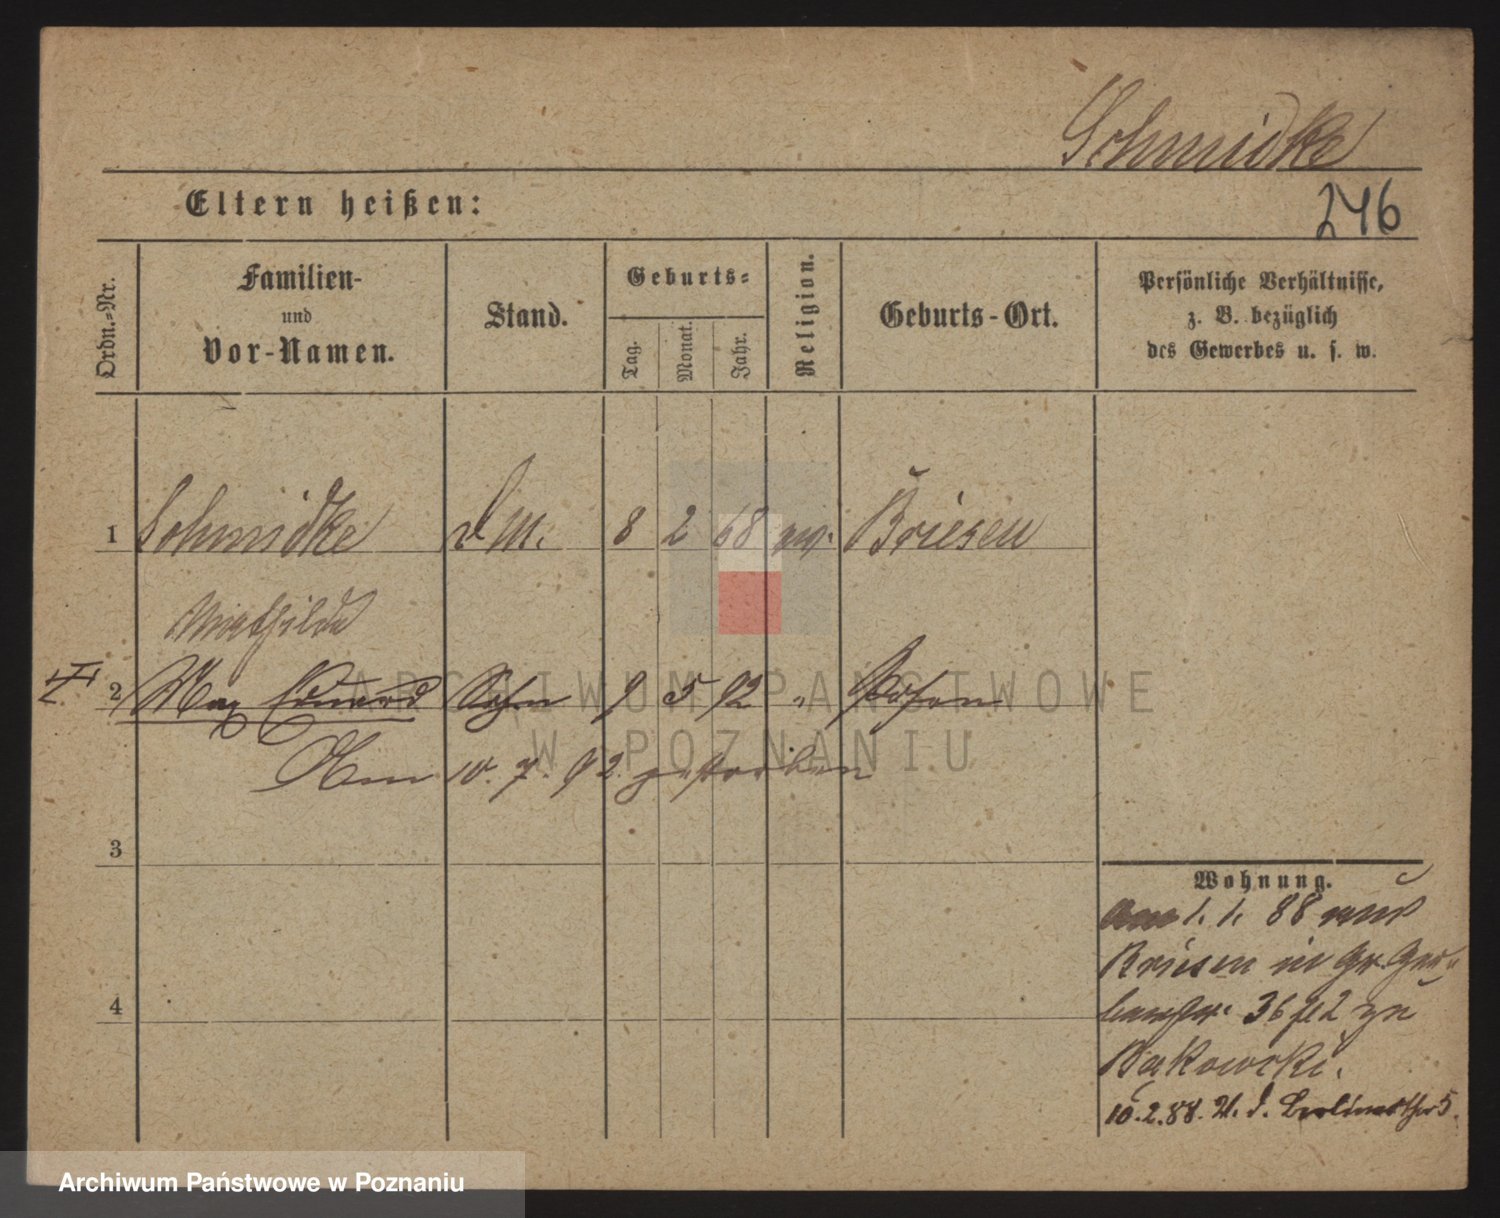 Schmidke
Eltern heißen:
246
Ordn.-Nr.
Familien-
und
Vor-Namen.
Stand.
Geburts-
Tag.
Monat.
Jahr.
Religion.
Geburts-Ort.
Persönliche Verhältnisse,
z. B. bezüglich
des Gewerbes u. s. w.
1 Schmidke d M. 8 2 68 Briesen
Mathilde
2 Max Eduard Sohn 9 5 92 " Posen
Am 10. 7. 92 gestorben
3
Wohnung.
am 1. 1. 88 aus
Briesen in Gr. Ger-
berstr. 36 zu
Bakowski.
4
10. 2. 88. Berlinerthor 5.
ARCHIWUM PAŃSTWOWE
W POZNANIU
Archiwum Państwowe w Poznaniu